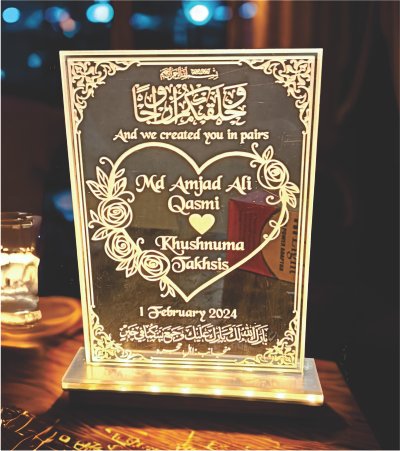 وخلقناكم ازواجا
And we created you in pairs
Md Amjad Ali
Qasmi
Khushnuma
Takhsis
1 February 2024
بارك الله لك وبارك عليك وجمع بينكما في خير